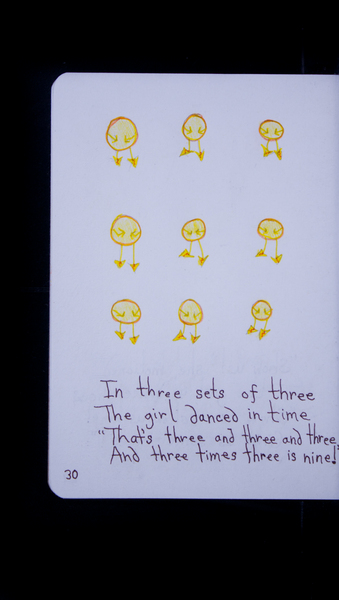 In three sets of three
The girl danced in time
"That's three and three and three,
And three times three is nine!"
30